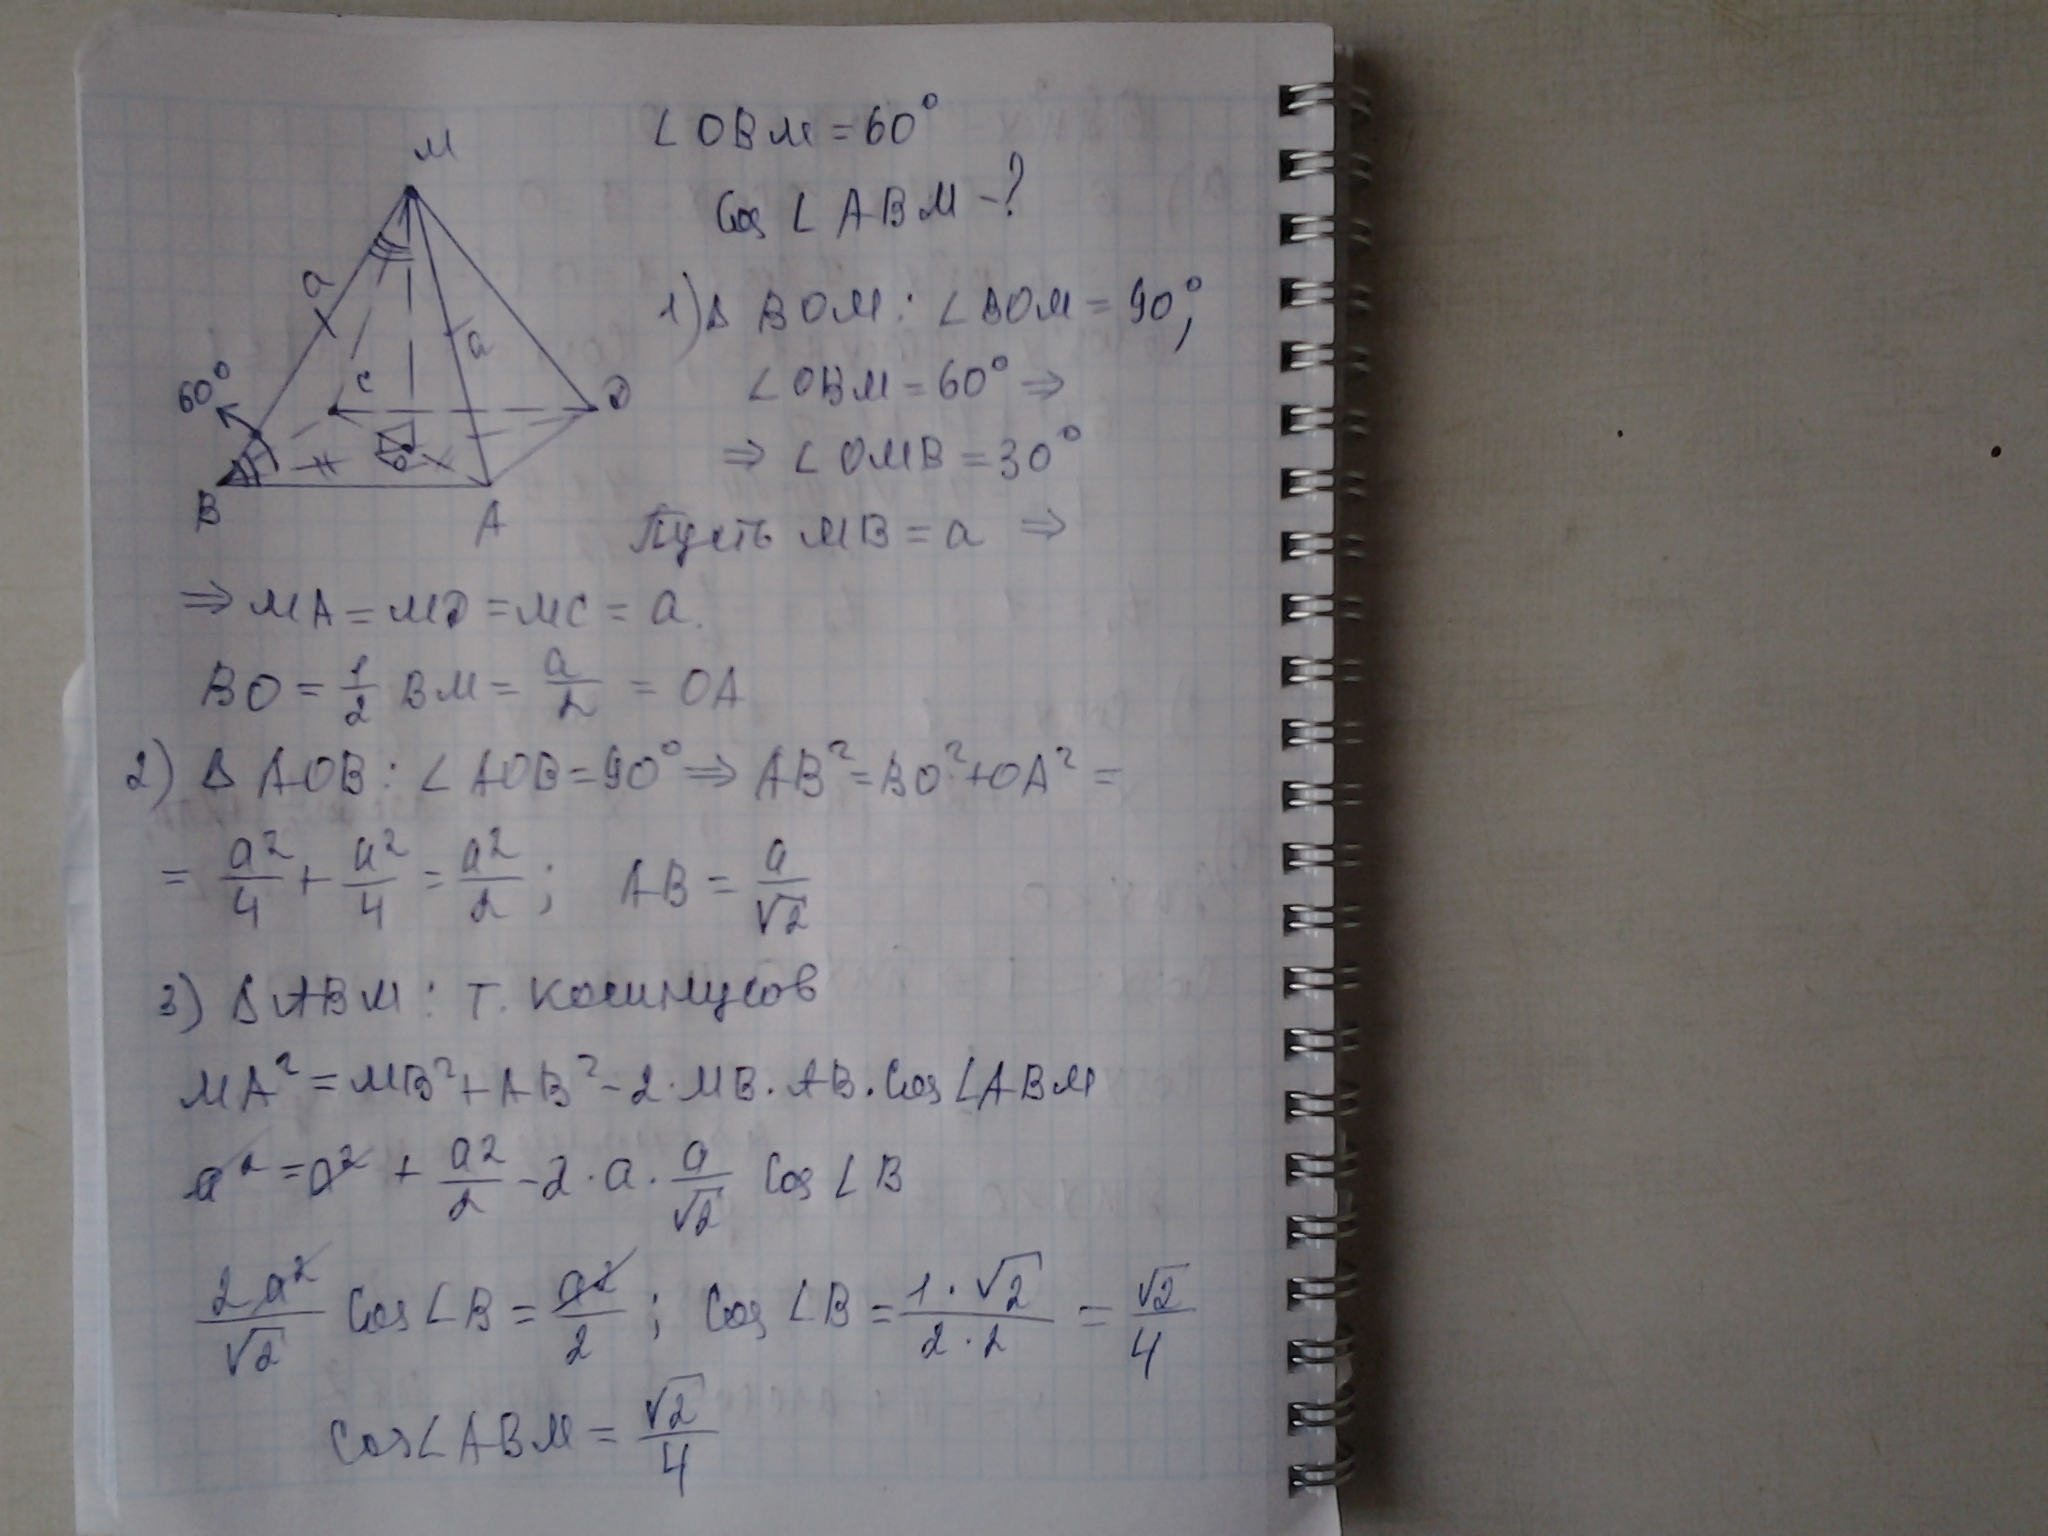 ∠OBM = 60°
Cos ∠ABM - ?
M
a
a
60°
C
D
O
B
A
1) Δ BOM : ∠BOM = 90°,
∠OBM = 60° ⇒
⇒ ∠OMB = 30°
Пусть MB = a ⇒
⇒ MA = MD = MC = a.
BO = 1/2 BM = a/2 = OA
2) Δ AOB : ∠AOB = 90° ⇒ AB² = BO² + OA² =
= a²/4 + a²/4 = a²/2 ; AB = a/√2
3) Δ ABM : т. косинусов
MA² = MB² + AB² - 2 · MB · AB · Cos ∠ABM
a² = a² + a²/2 - 2 · a · a/√2 Cos ∠B
2a²/√2 Cos ∠B = a²/2 ; Cos ∠B = 1·√2/2·2 = √2/4
Cos ∠ABM = √2/4